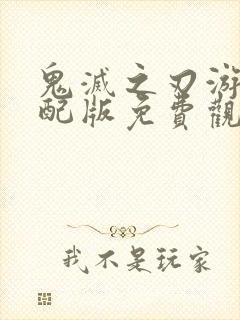 鬼滅之刃游
配版免費觀
我不是玩家